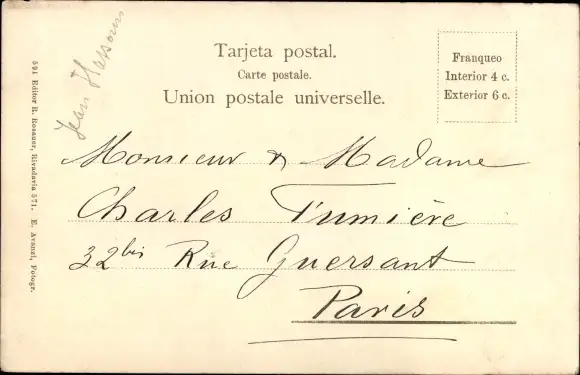 Tarjeta postal.
Carte postale.
Union postale universelle.
Franqueo
Interior 4 c.
Exterior 6 c.
Jean
591 Editor R. Rosauer, Rivadavia 571. E. Avanzi, Fotogr.
Monsieur & Madame
Charles Fumière
32bis Rue Guersant
Paris